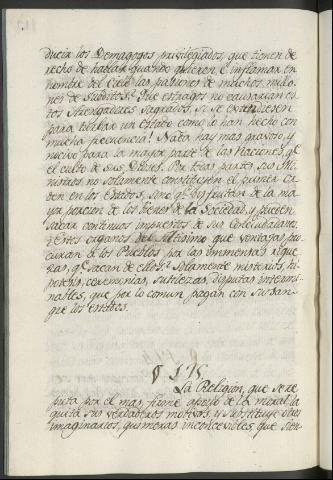 ducir los Demagogos privilegiados, que tienen de
recho de hablar quando quieren e inflamar en
nombre del Cielo las pasiones de muchos millo
nes de subditos? Que estragos no causarian es
tos Arengadores Sagrados, si se entendiesen
para turbar un estado como lo han hecho con
mucha frecuencia! Nada hay mas gravoso, y
para la mayor parte de las Naciones, qe
el culto de sus Dioses. Por todas partes sus Mi
nistros no solamente constituyen el primer or
den en los Estados, sino qe disfrutan de la ma
yor porcion de los bienes de la Sociedad, y pueden
sacar continuos impuestos de sus Conciudadanos.
Estos organos del Altisimo que ventajas pro
curan a los Pueblos por las immensas rique
zas, qe sacan de ellos? Solamente misterios, hi
potesis, ceremonias, sutilezas, disputas intermi
nables, que por lo comun pagan con su san
gre los estados.
La Religion, que se re
puta por el mas firme apoyo de la moral la
quita sus verdaderos motivos, y substituye otros
imaginarios, quimeras inconcevibles, que sien